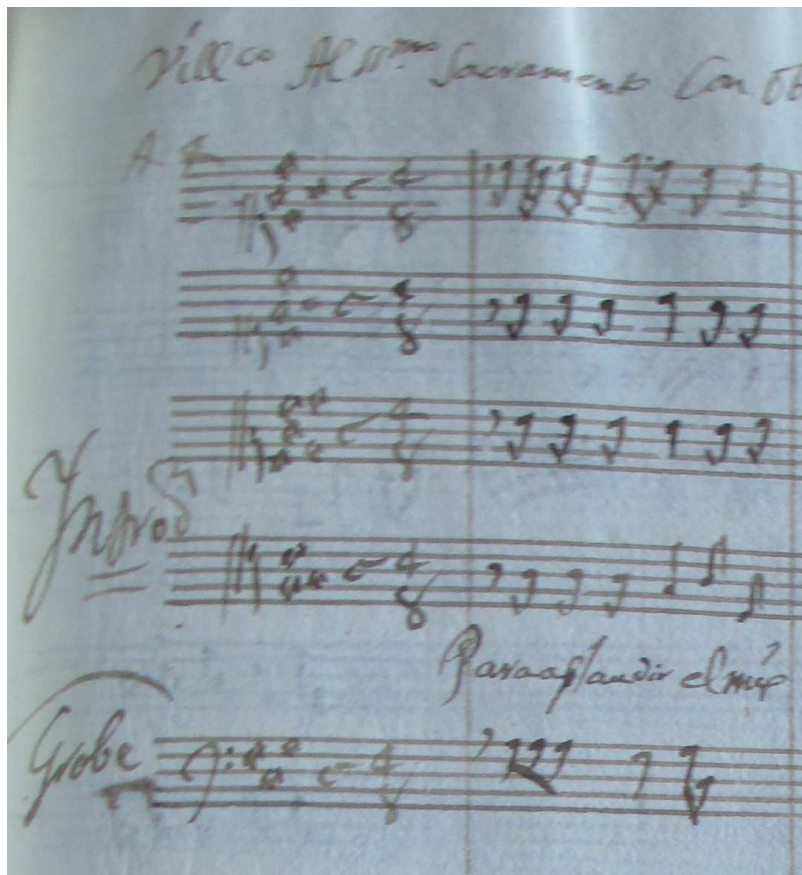 Villco Al ssmo Sacramento Con ob
A 4
Introd
Para aplaudir el mis
Grobe